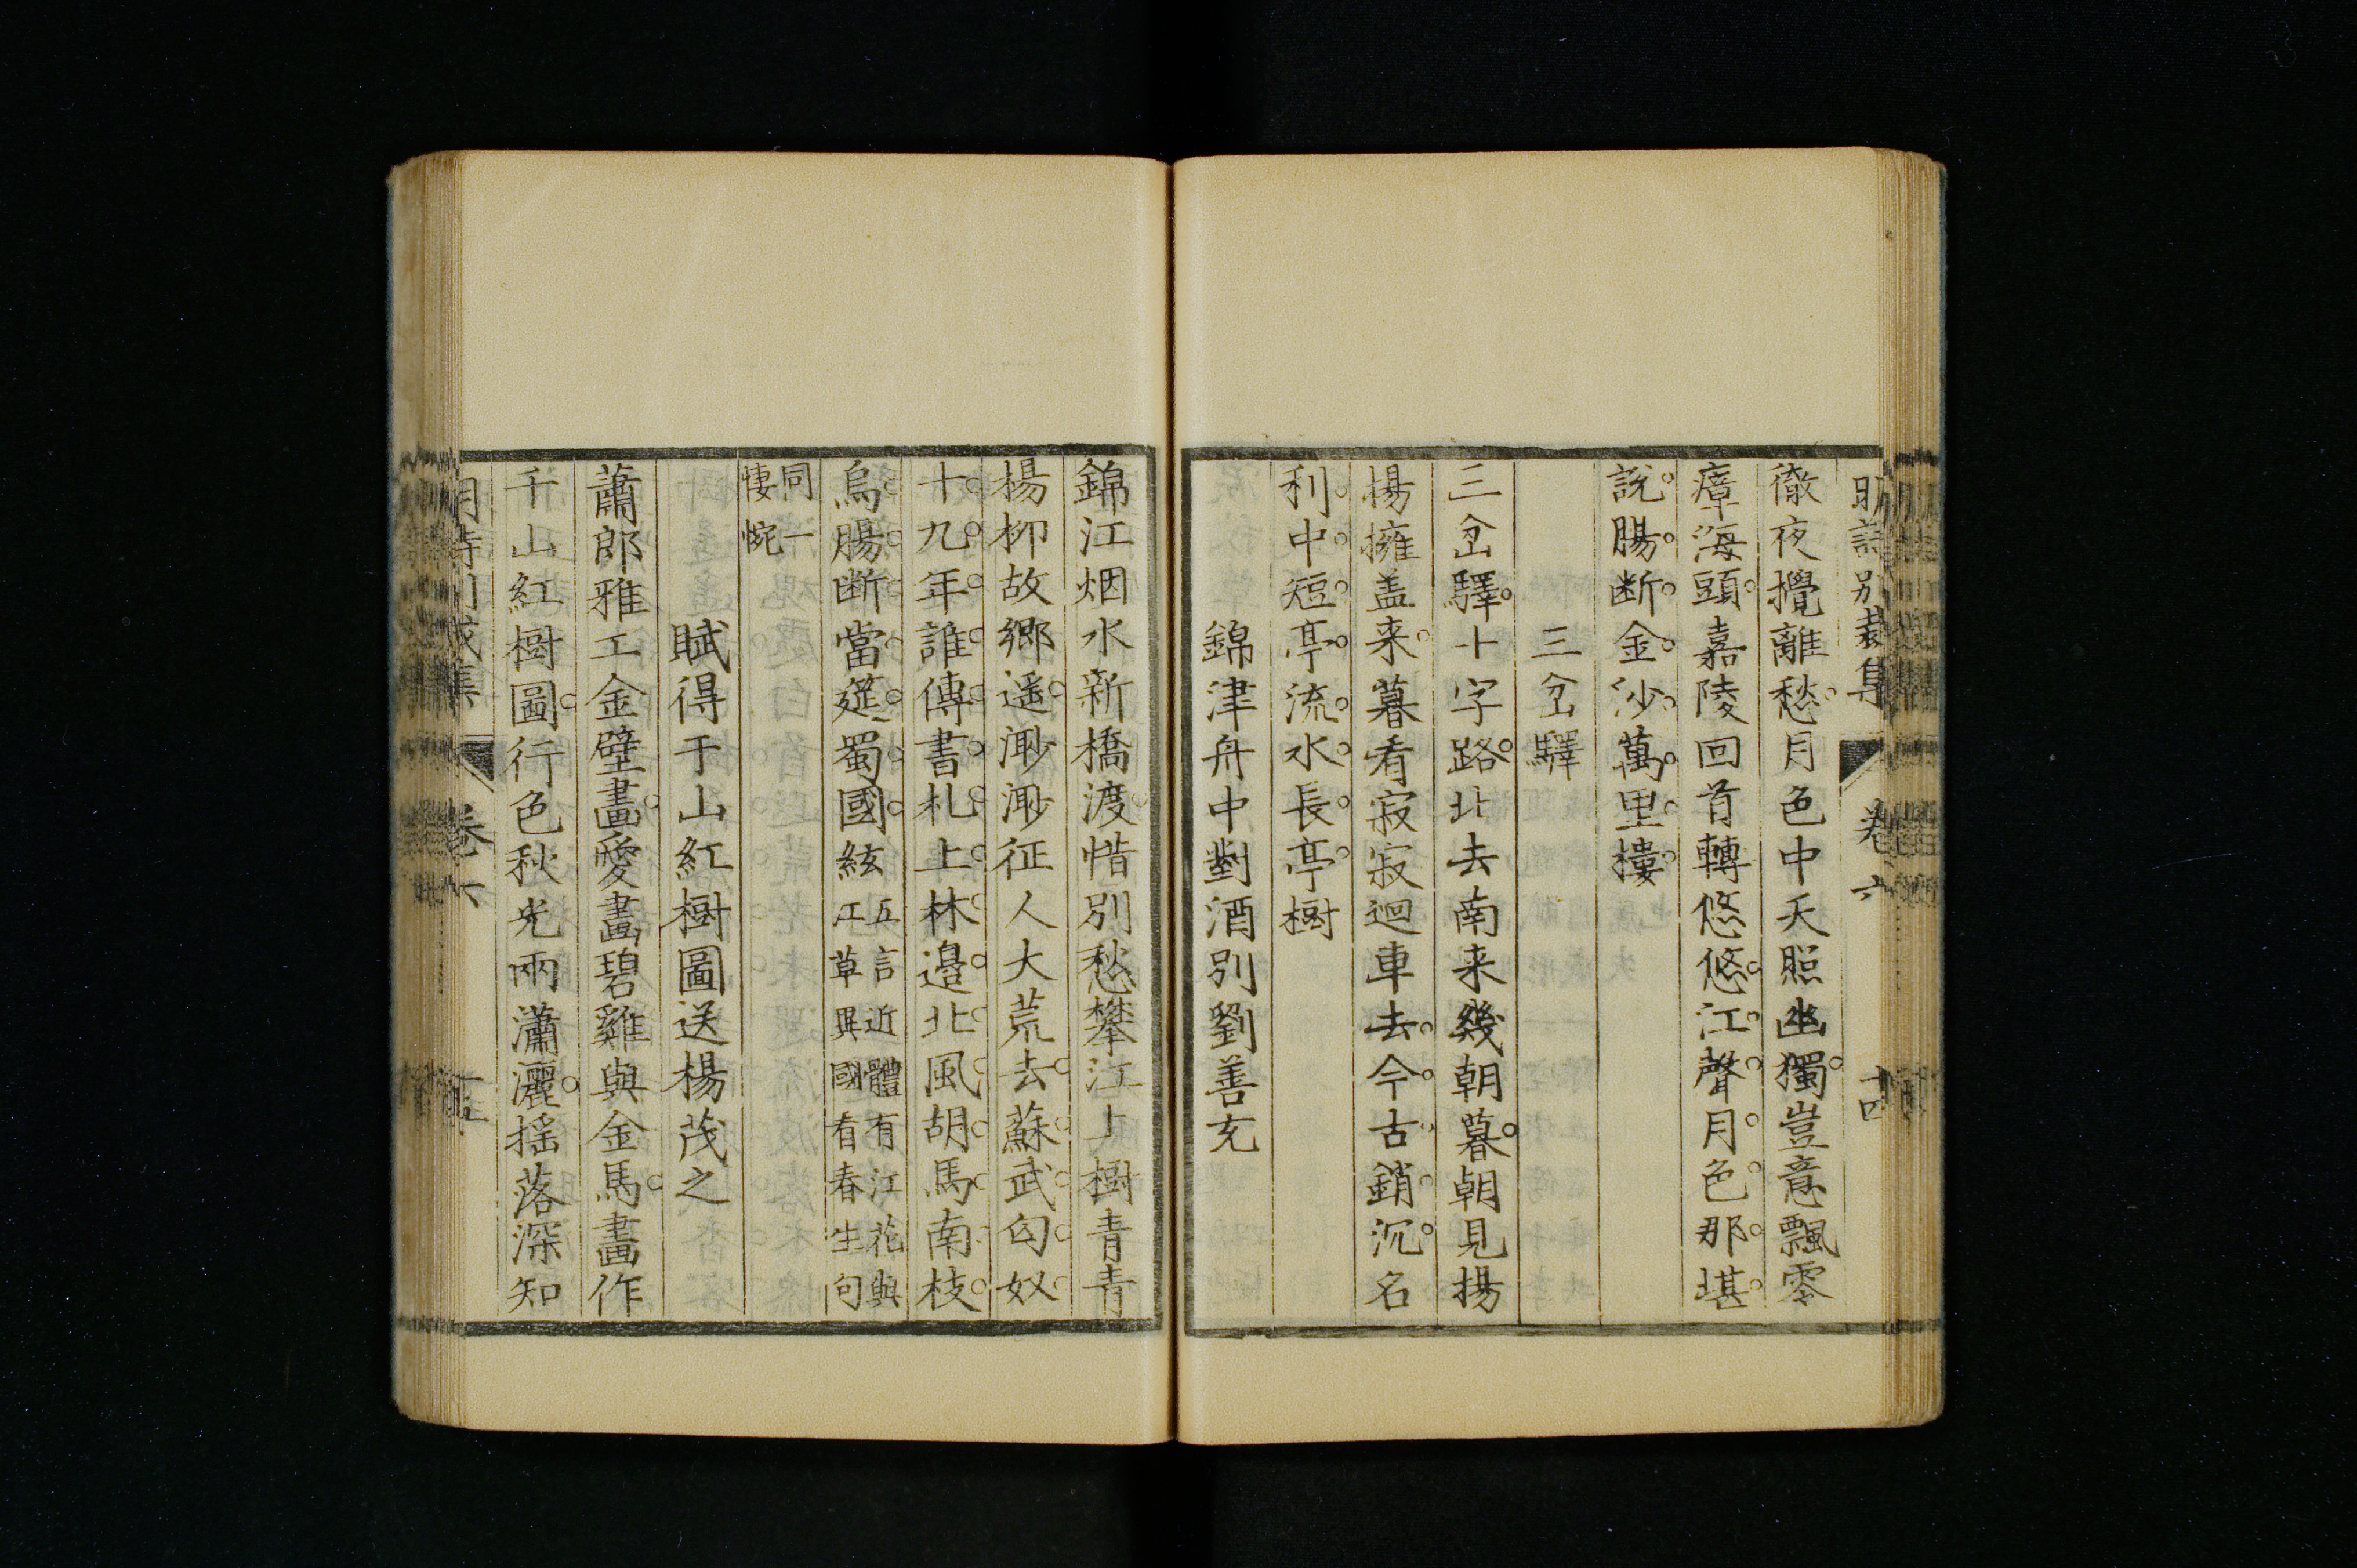 明詩別裁集 卷六 十四
徹夜攪離愁月色中天照幽獨豈意飄零
瘴海頭嘉陵回首轉悠悠江聲月色那堪
說腸断金沙萬里樓
三岔驛
三岔驛十字路北去南来幾朝暮朝見揚
揚擁盖来暮看寂寂迴車去今古銷沉名
利中短亭流水長亭樹
錦津舟中對酒別劉善充
錦江烟水新橋渡惜別愁攀江上樹青青
楊柳故鄉遥渺渺征人大荒去蘇武匈奴
十九年誰傳書札上林邉北風胡馬南枝
烏腸断當筵蜀國絃五言近體有江花與
江草異國看春生句
同一
悽惋
賦得千山紅樹圖送楊茂之
蕭郎雅工金壁畫愛畫碧雞與金馬畫作
千山紅樹圖行色秋光兩瀟灑摇落深知
卷六